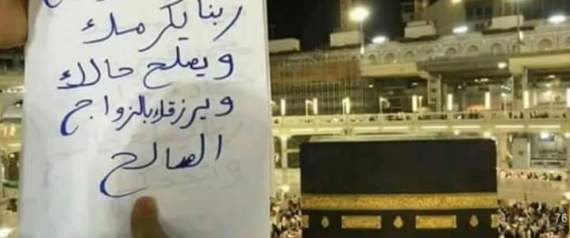 ربنا يكرمك
ويصلح حالك
ويرزقك بالزواج
الصالح
76